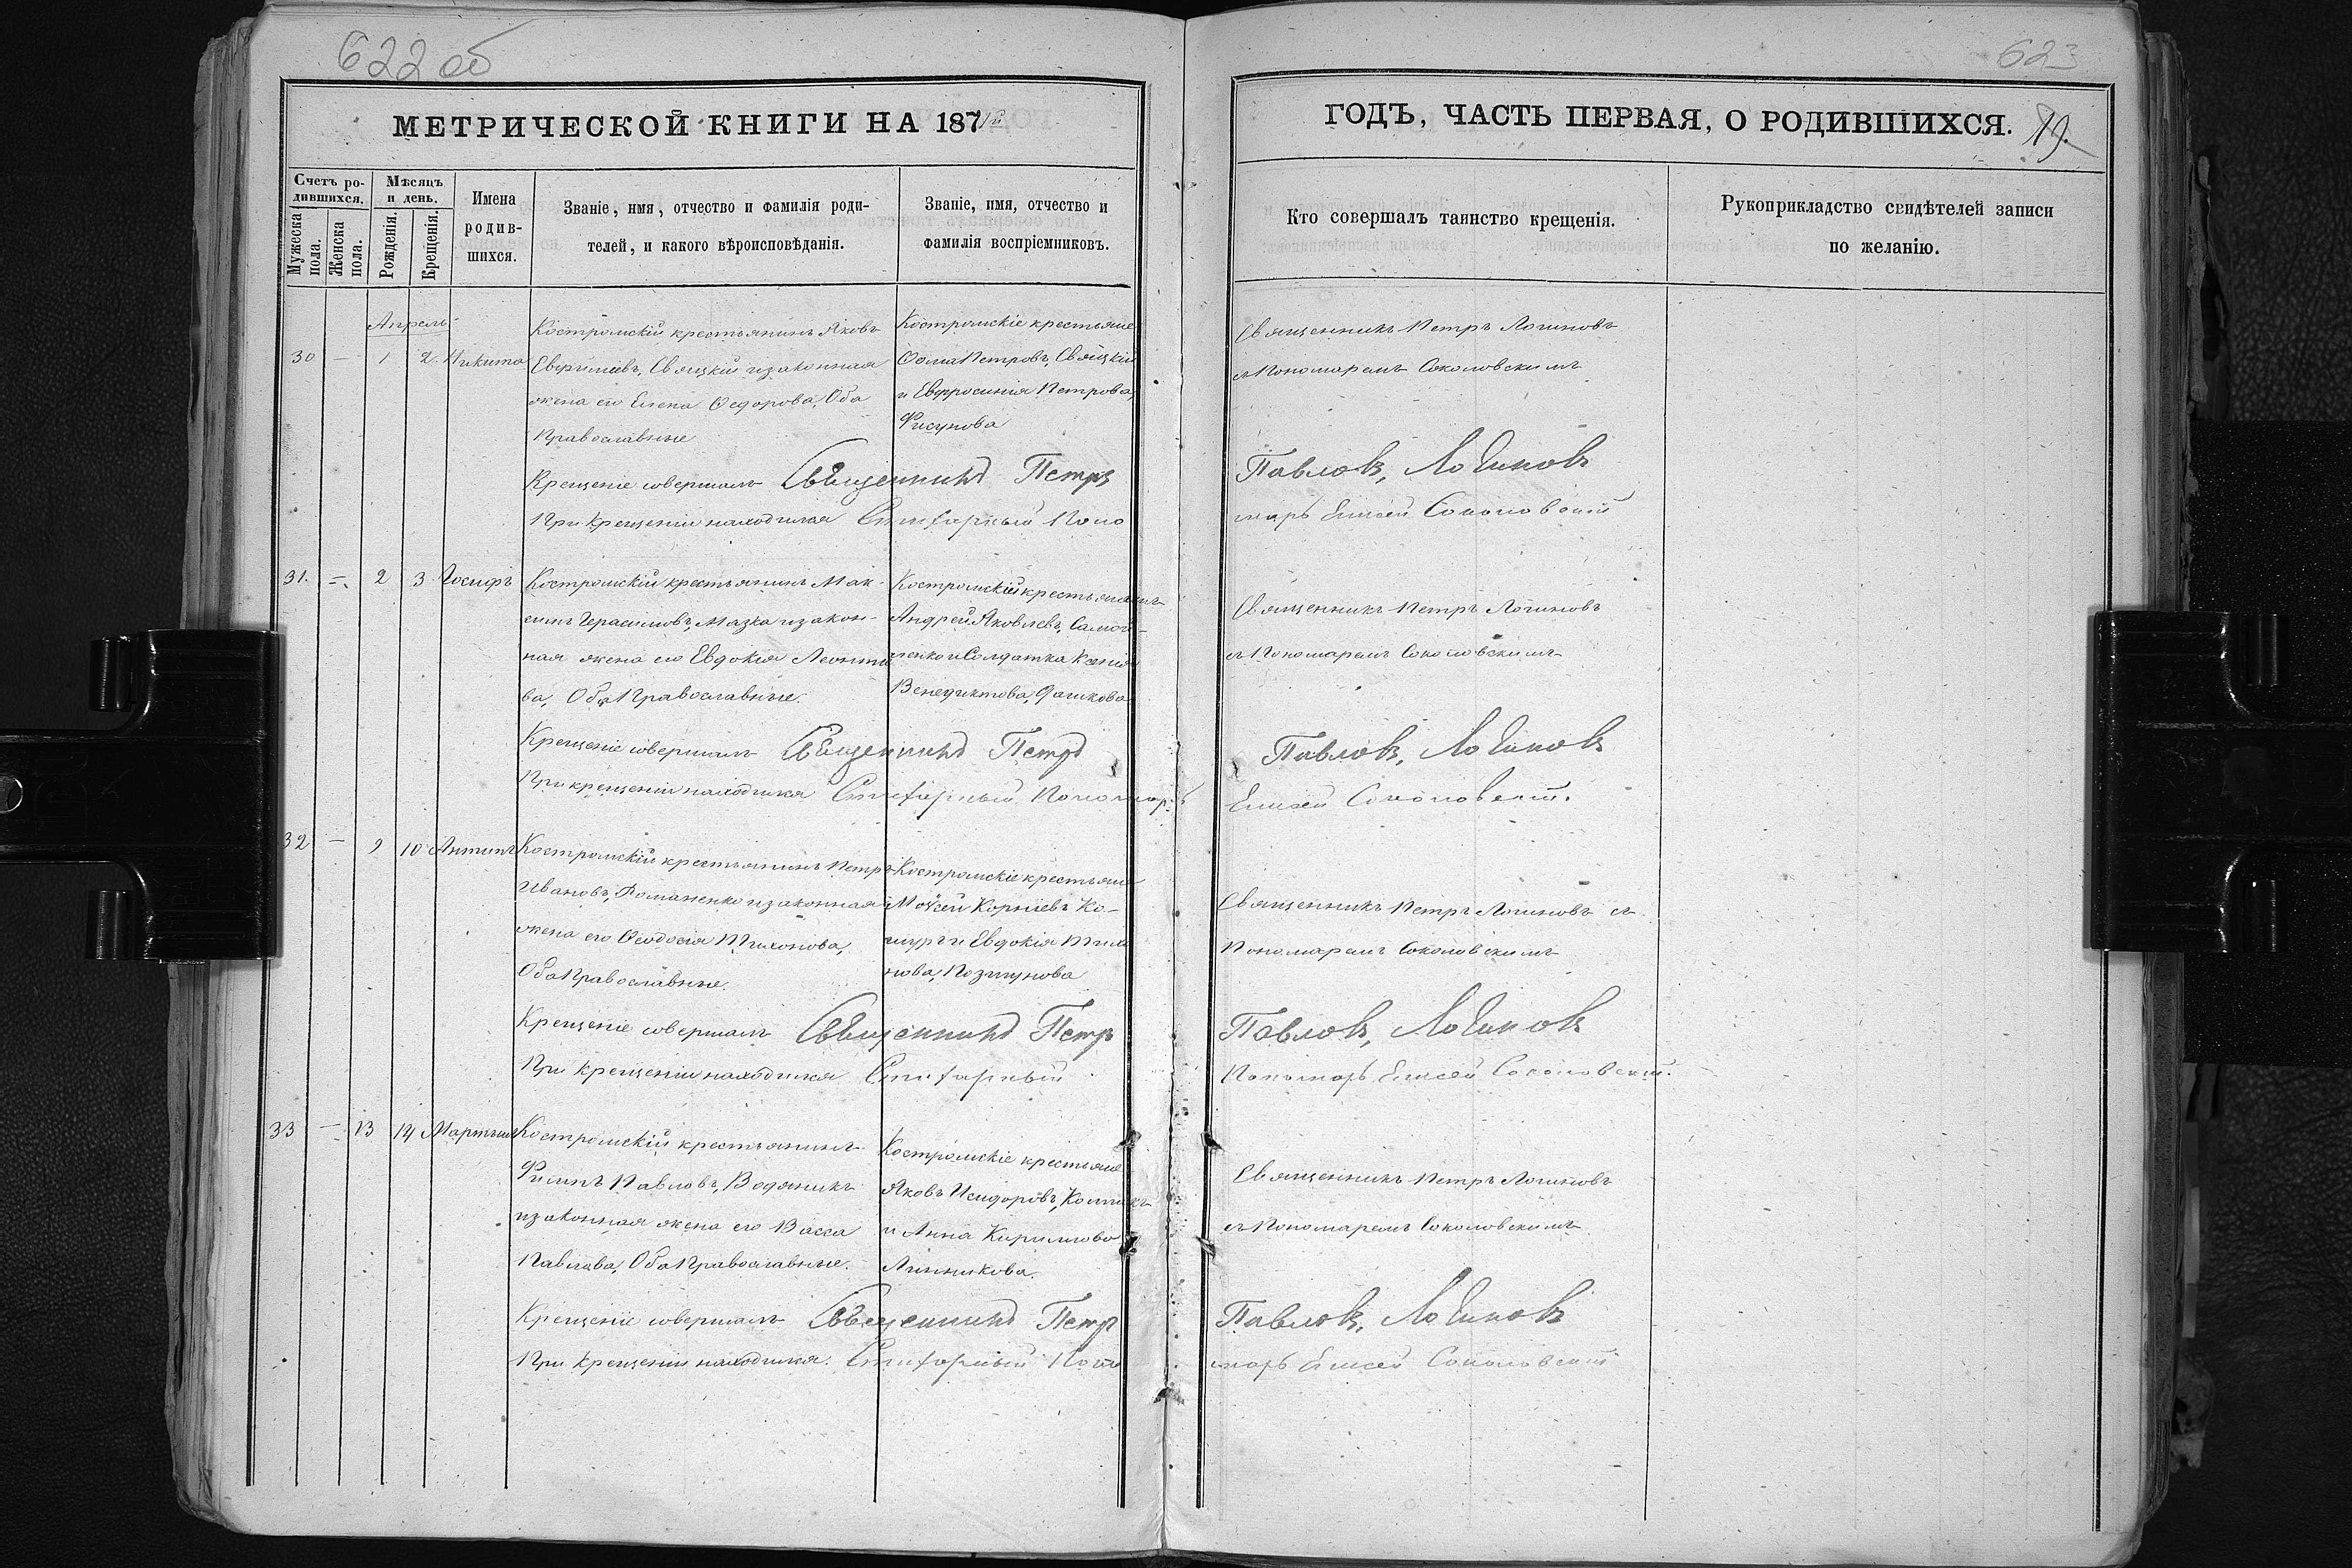 622 об
МЕТРИЧЕСКОЙ КНИГИ НА 187
Счетъ ро-
дившихся.
Мужеска
пола.
Женска
пола.
Мѣсяцъ
и день.
Рожденія.
Крещенія.
Имена
родив-
шихся.
Званіе, имя, отчество и фамилія роди-
телей, и какого вѣроисповѣданія.
Званіе, имя, отчество и
фамилія воспріемниковъ.
Апрель
30 — 1 2. Никита
Костромскій крестьянинъ Яковъ
Свяцкій и законная
жена его Елена Ѳедорова, Оба
Православные
Костромскіе крестьяне
Ѳома Петровъ, Свяцкій
и Евфросинія Петрова,
Фисунова
Крещеніе совершалъ Священникъ Петръ
При крещеніи находился Стихарный Поно
31. =. 2 3 Іосифъ
Костромскій крестьянинъ Мак-
симъ Герасимовъ, Мазка и закон-
ная жена его Евдокія Леонтие
ва, Оба Православные.
Костромскій крестьянинъ
Андрей Яковлевъ, Самой-
ленко и Солдатка Ксенія
Венедиктова, Дашкова
Крещеніе совершалъ Священникъ Петръ
При крещеніи находился Стихарный Пономарь
32 — 9 10 Антипъ
Костромскій крестьянинъ Петръ
Ивановъ, Романенко и законная
жена его Ѳеодосія Тихонова,
Оба Православные.
Костромскіе крестьяне
Мойсей Корніевъ Ко-
шуръ и Евдокія Тихо
нова,
Крещеніе совершалъ Священникъ Петръ
При крещеніи находился Стихарный
33 — 13 14 Мартынъ
Костромскій крестьянинъ
Филипъ Павловъ, Водяникъ
и законная жена его Васса
Павлова, Оба Православные.
Костромскіе крестьяне
Яковъ Исидоровъ,
и Анна Кириллова
Линникова.
Крещеніе совершалъ Священникъ Петръ
При крещеніи находился. Стихарный Поно
623
ГОДЪ, ЧАСТЬ ПЕРВАЯ, О РОДИВШИХСЯ.
19.
Кто совершалъ таинство крещенія.
Рукоприкладство свидѣтелей записи
по желанію.
Священникъ Петръ Логиновъ
съ Пономаремъ Соколовскимъ
Павловъ, Логиновъ
марь Елисей Соколовскій
Священникъ Петръ Логиновъ
съ Пономаремъ Соколовскимъ
Павловъ, Логиновъ
Елисей Соколовскій.
Священникъ Петръ Логиновъ съ
Пономаремъ Соколовскимъ
Павловъ, Логиновъ
Пономарь Елисей Соколовскій.
Священникъ Петръ Логиновъ
съ Пономаремъ Соколовскимъ
Павловъ, Логиновъ
марь Елисей Соколовскій